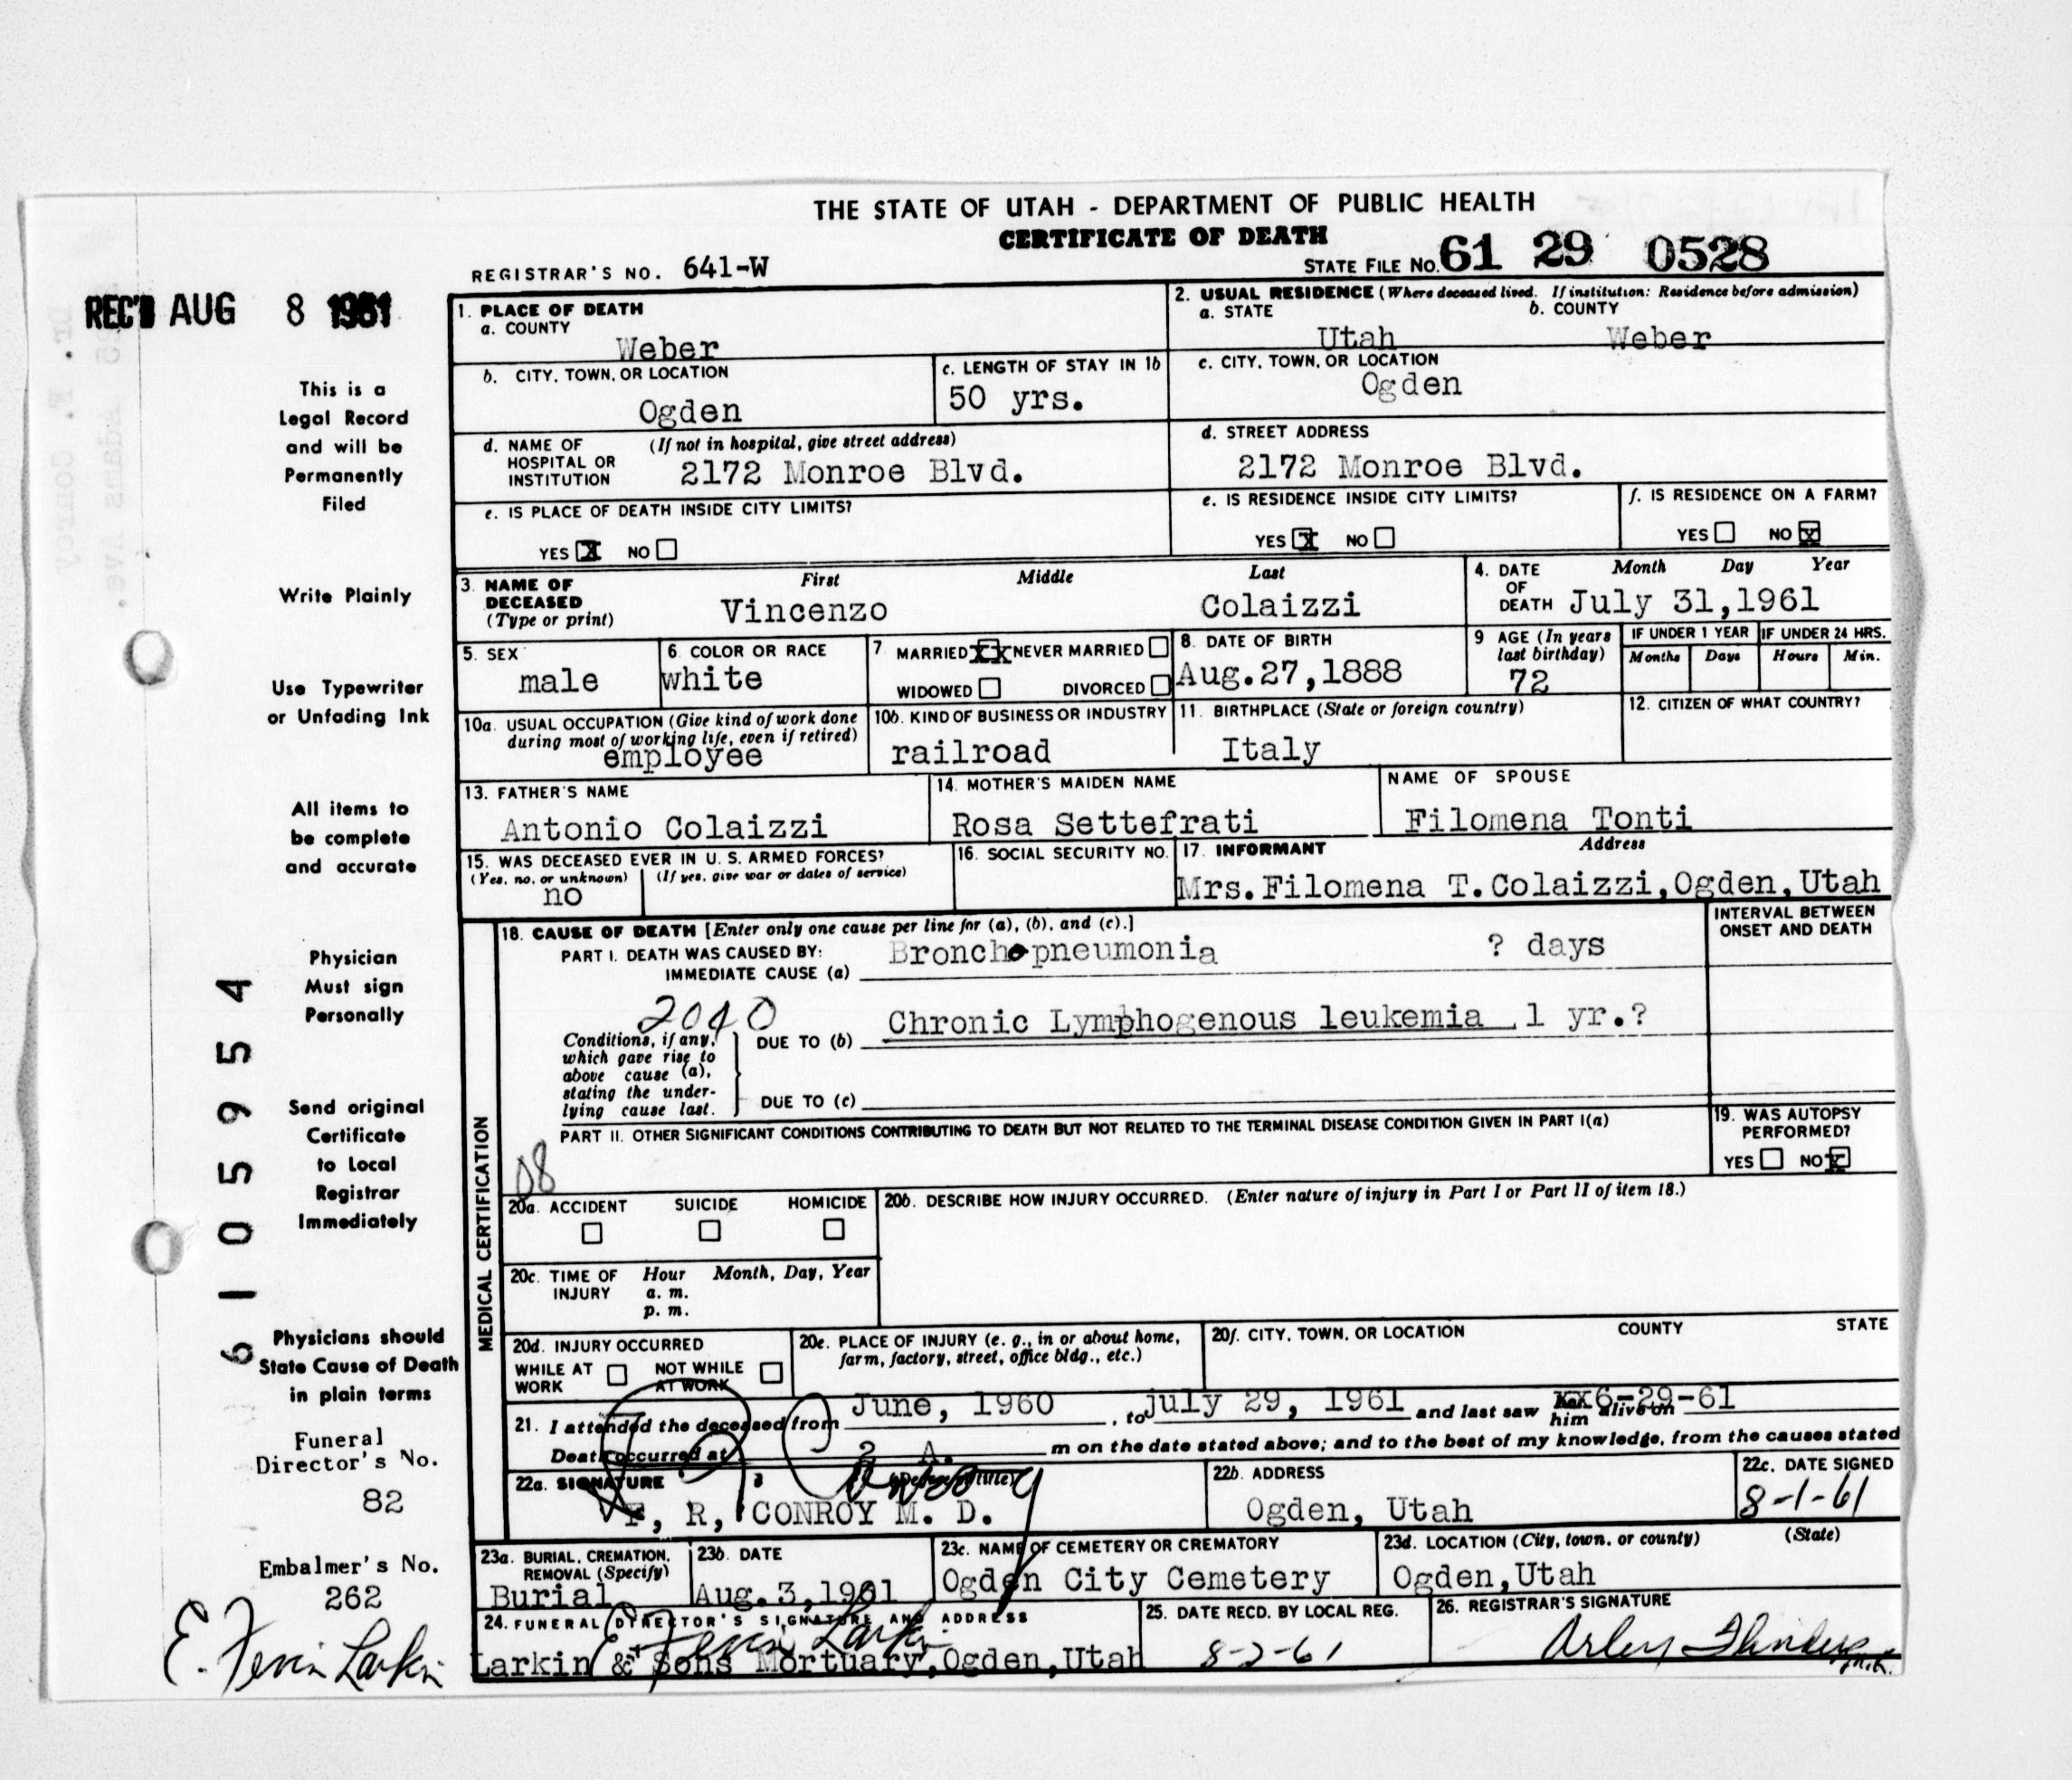 THE STATE OF UTAH - DEPARTMENT OF PUBLIC HEALTH
CERTIFICATE OF DEATH
REGISTRAR'S NO. 641-W
STATE FILE NO. 61 29 0528
REC'D AUG 8 1961
1. PLACE OF DEATH
a. COUNTY
Weber
2. USUAL RESIDENCE (Where deceased lived. If institution: Residence before admission)
a. STATE b. COUNTY
Utah Weber
b. CITY, TOWN, OR LOCATION
Ogden
c. LENGTH OF STAY IN 1b
50 yrs.
c. CITY, TOWN, OR LOCATION
Ogden
d. NAME OF (If not in hospital, give street address)
HOSPITAL OR
INSTITUTION 2172 Monroe Blvd.
d. STREET ADDRESS
2172 Monroe Blvd.
e. IS PLACE OF DEATH INSIDE CITY LIMITS?
YES X NO
e. IS RESIDENCE INSIDE CITY LIMITS?
YES X NO
f. IS RESIDENCE ON A FARM?
YES NO X
3. NAME OF DECEASED (Type or print)
First Middle Last
Vincenzo Colaizzi
4. DATE OF DEATH Month Day Year
July 31,1961
5. SEX
male
6. COLOR OR RACE
white
7 MARRIED XX NEVER MARRIED
WIDOWED DIVORCED
8. DATE OF BIRTH
Aug.27,1888
9 AGE (In years last birthday)
72
IF UNDER 1 YEAR IF UNDER 24 HRS.
Months Days Hours Min.
10a. USUAL OCCUPATION (Give kind of work done
during most of working life, even if retired)
employee
10b. KIND OF BUSINESS OR INDUSTRY
railroad
11. BIRTHPLACE (State or foreign country)
Italy
12. CITIZEN OF WHAT COUNTRY?
13. FATHER'S NAME
Antonio Colaizzi
14. MOTHER'S MAIDEN NAME
Rosa Settefrati
NAME OF SPOUSE
Filomena Tonti
15. WAS DECEASED EVER IN U. S. ARMED FORCES?
(Yes, no, or unknown) (If yes, give war or dates of service)
no
16. SOCIAL SECURITY NO.
17. INFORMANT Address
Mrs.Filomena T.Colaizzi,Ogden,Utah
MEDICAL CERTIFICATION
18. CAUSE OF DEATH [Enter only one cause per line for (a), (b), and (c).]
INTERVAL BETWEEN
ONSET AND DEATH
PART I. DEATH WAS CAUSED BY:
IMMEDIATE CAUSE (a) Bronchopneumonia ? days
2040
Conditions, if any,
which gave rise to
above cause (a),
stating the under-
lying cause last.
DUE TO (b) Chronic Lymphogenous leukemia 1 yr.?
DUE TO (c)
PART II. OTHER SIGNIFICANT CONDITIONS CONTRIBUTING TO DEATH BUT NOT RELATED TO THE TERMINAL DISEASE CONDITION GIVEN IN PART I(a)
08
19. WAS AUTOPSY
PERFORMED?
YES NO X
20a. ACCIDENT SUICIDE HOMICIDE
20b. DESCRIBE HOW INJURY OCCURRED. (Enter nature of injury in Part I or Part II of item 18.)
20c. TIME OF INJURY Hour Month, Day, Year
a. m.
p. m.
20d. INJURY OCCURRED
WHILE AT WORK NOT WHILE AT WORK
20e. PLACE OF INJURY (e. g., in or about home,
farm, factory, street, office bldg., etc.)
20f. CITY, TOWN, OR LOCATION COUNTY STATE
21. I attended the deceased from June, 1960, to July 29, 1961 and last saw him alive on 6-29-61
Death occurred at 2 A. m on the date stated above; and to the best of my knowledge, from the causes stated
22a. SIGNATURE (Degree or title)
F, R, CONROY M. D.
22b. ADDRESS
Ogden, Utah
22c. DATE SIGNED
8-1-61
23a. BURIAL, CREMATION,
REMOVAL (Specify)
Burial
23b. DATE
Aug.3,1961
23c. NAME OF CEMETERY OR CREMATORY
Ogden City Cemetery
23d. LOCATION (City, town, or county) (State)
Ogden,Utah
24. FUNERAL DIRECTOR'S SIGNATURE AND ADDRESS
E. Fevin Larkin
Larkin & Sons Mortuary,Ogden,Utah
25. DATE RECD. BY LOCAL REG.
8-2-61
26. REGISTRAR'S SIGNATURE
Arley Flinders
This is a
Legal Record
and will be
Permanently
Filed
Write Plainly
Use Typewriter
or Unfading Ink
All items to
be complete
and accurate
Physician
Must sign
Personally
Send original
Certificate
to Local
Registrar
Immediately
Physicians should
State Cause of Death
in plain terms
61059 54
Funeral
Director's No.
82
Embalmer's No.
262
E. Fevin Larkin